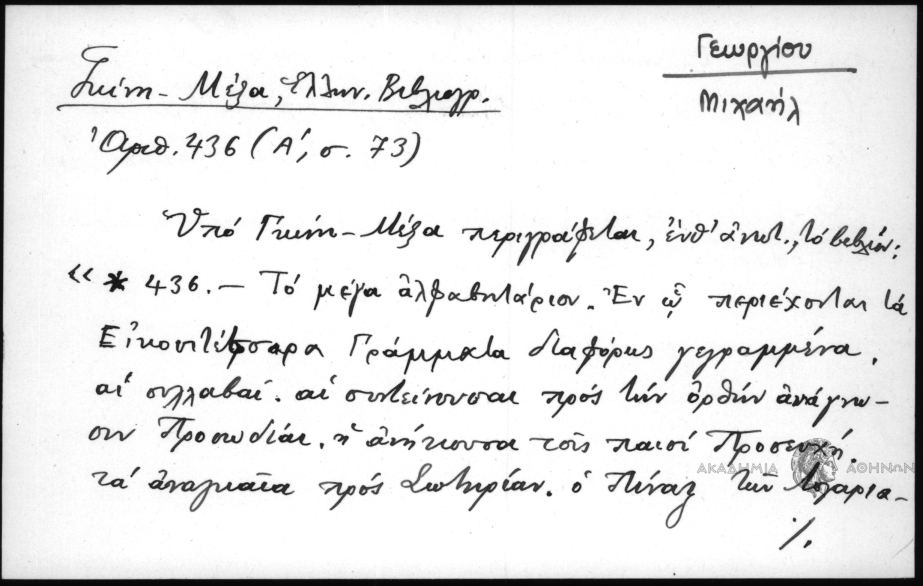 Γεωργίου
Μιχαήλ
Γκίνη - Μέξα, Ἑλλην. Βιβλιογρ.
Ἀριθ. 436 (Α΄, σ. 73)
Ὑπό Γκίνη - Μέξα περιγράφεται, ἐνθ' ἀνωτ., τό βιβλίον:
“ * 436. — Τό μέγα ἀλφαβητάριον. Ἐν ᾧ περιέχονται τά
Εἰκοσιτέσσαρα Γράμματα διαφόρως γεγραμμένα.
αἱ συλλαβαί. αἱ συντείνουσαι πρός τήν ὀρθήν ἀνάγνω-
σιν Προσωδίαι. ἡ ἀνήκουσα τοῖς παισί Προσευχή.
τά ἀναγκαῖα πρός Σωτηρίαν. ὁ Πίναξ τῶν Λογαρια-
./.
ΑΚΑΔΗΜΙΑ ΑΘΗΝΩΝ